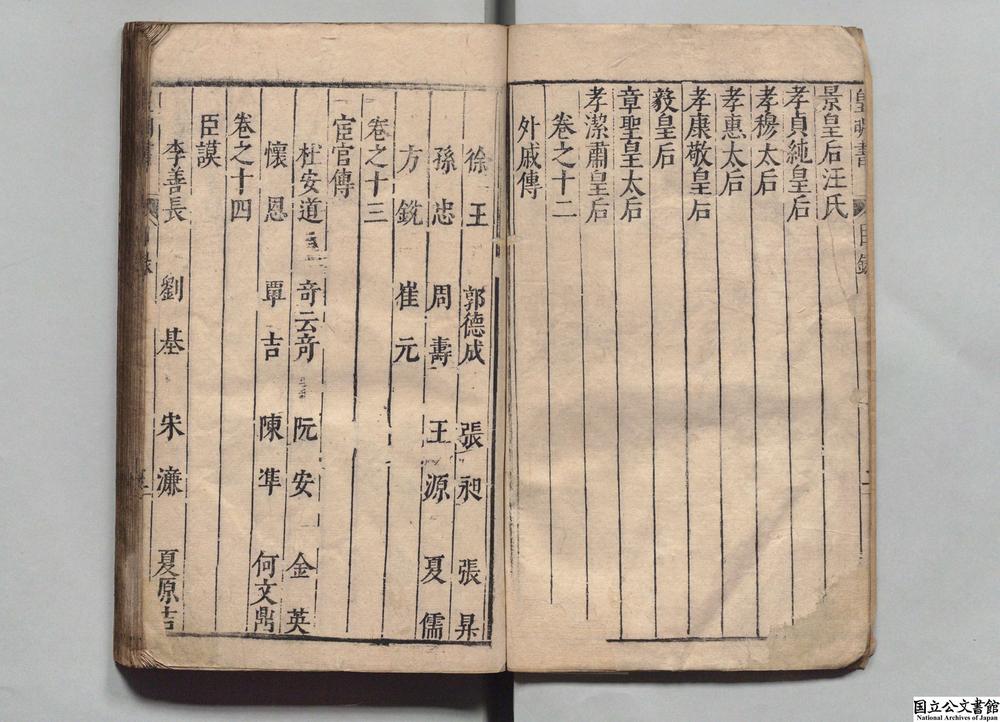 景皇后汪氏
孝貞純皇后
孝穆太后
孝惠太后
孝康敬皇后
毅皇后
章聖皇太后
孝潔肅皇后
卷之十二
外戚傳
徐王 郭德成 張昶 張昇
孫忠 周壽 王源 夏儒
方銳 崔元
卷之十三
宦官傳
杜安道 云奇 阮安 金英
懷恩 覃吉 陳準 何文鼎
卷之十四
臣謨
李善長 劉基 宋濂 夏原吉
国立公文書館
National Archives of Japan